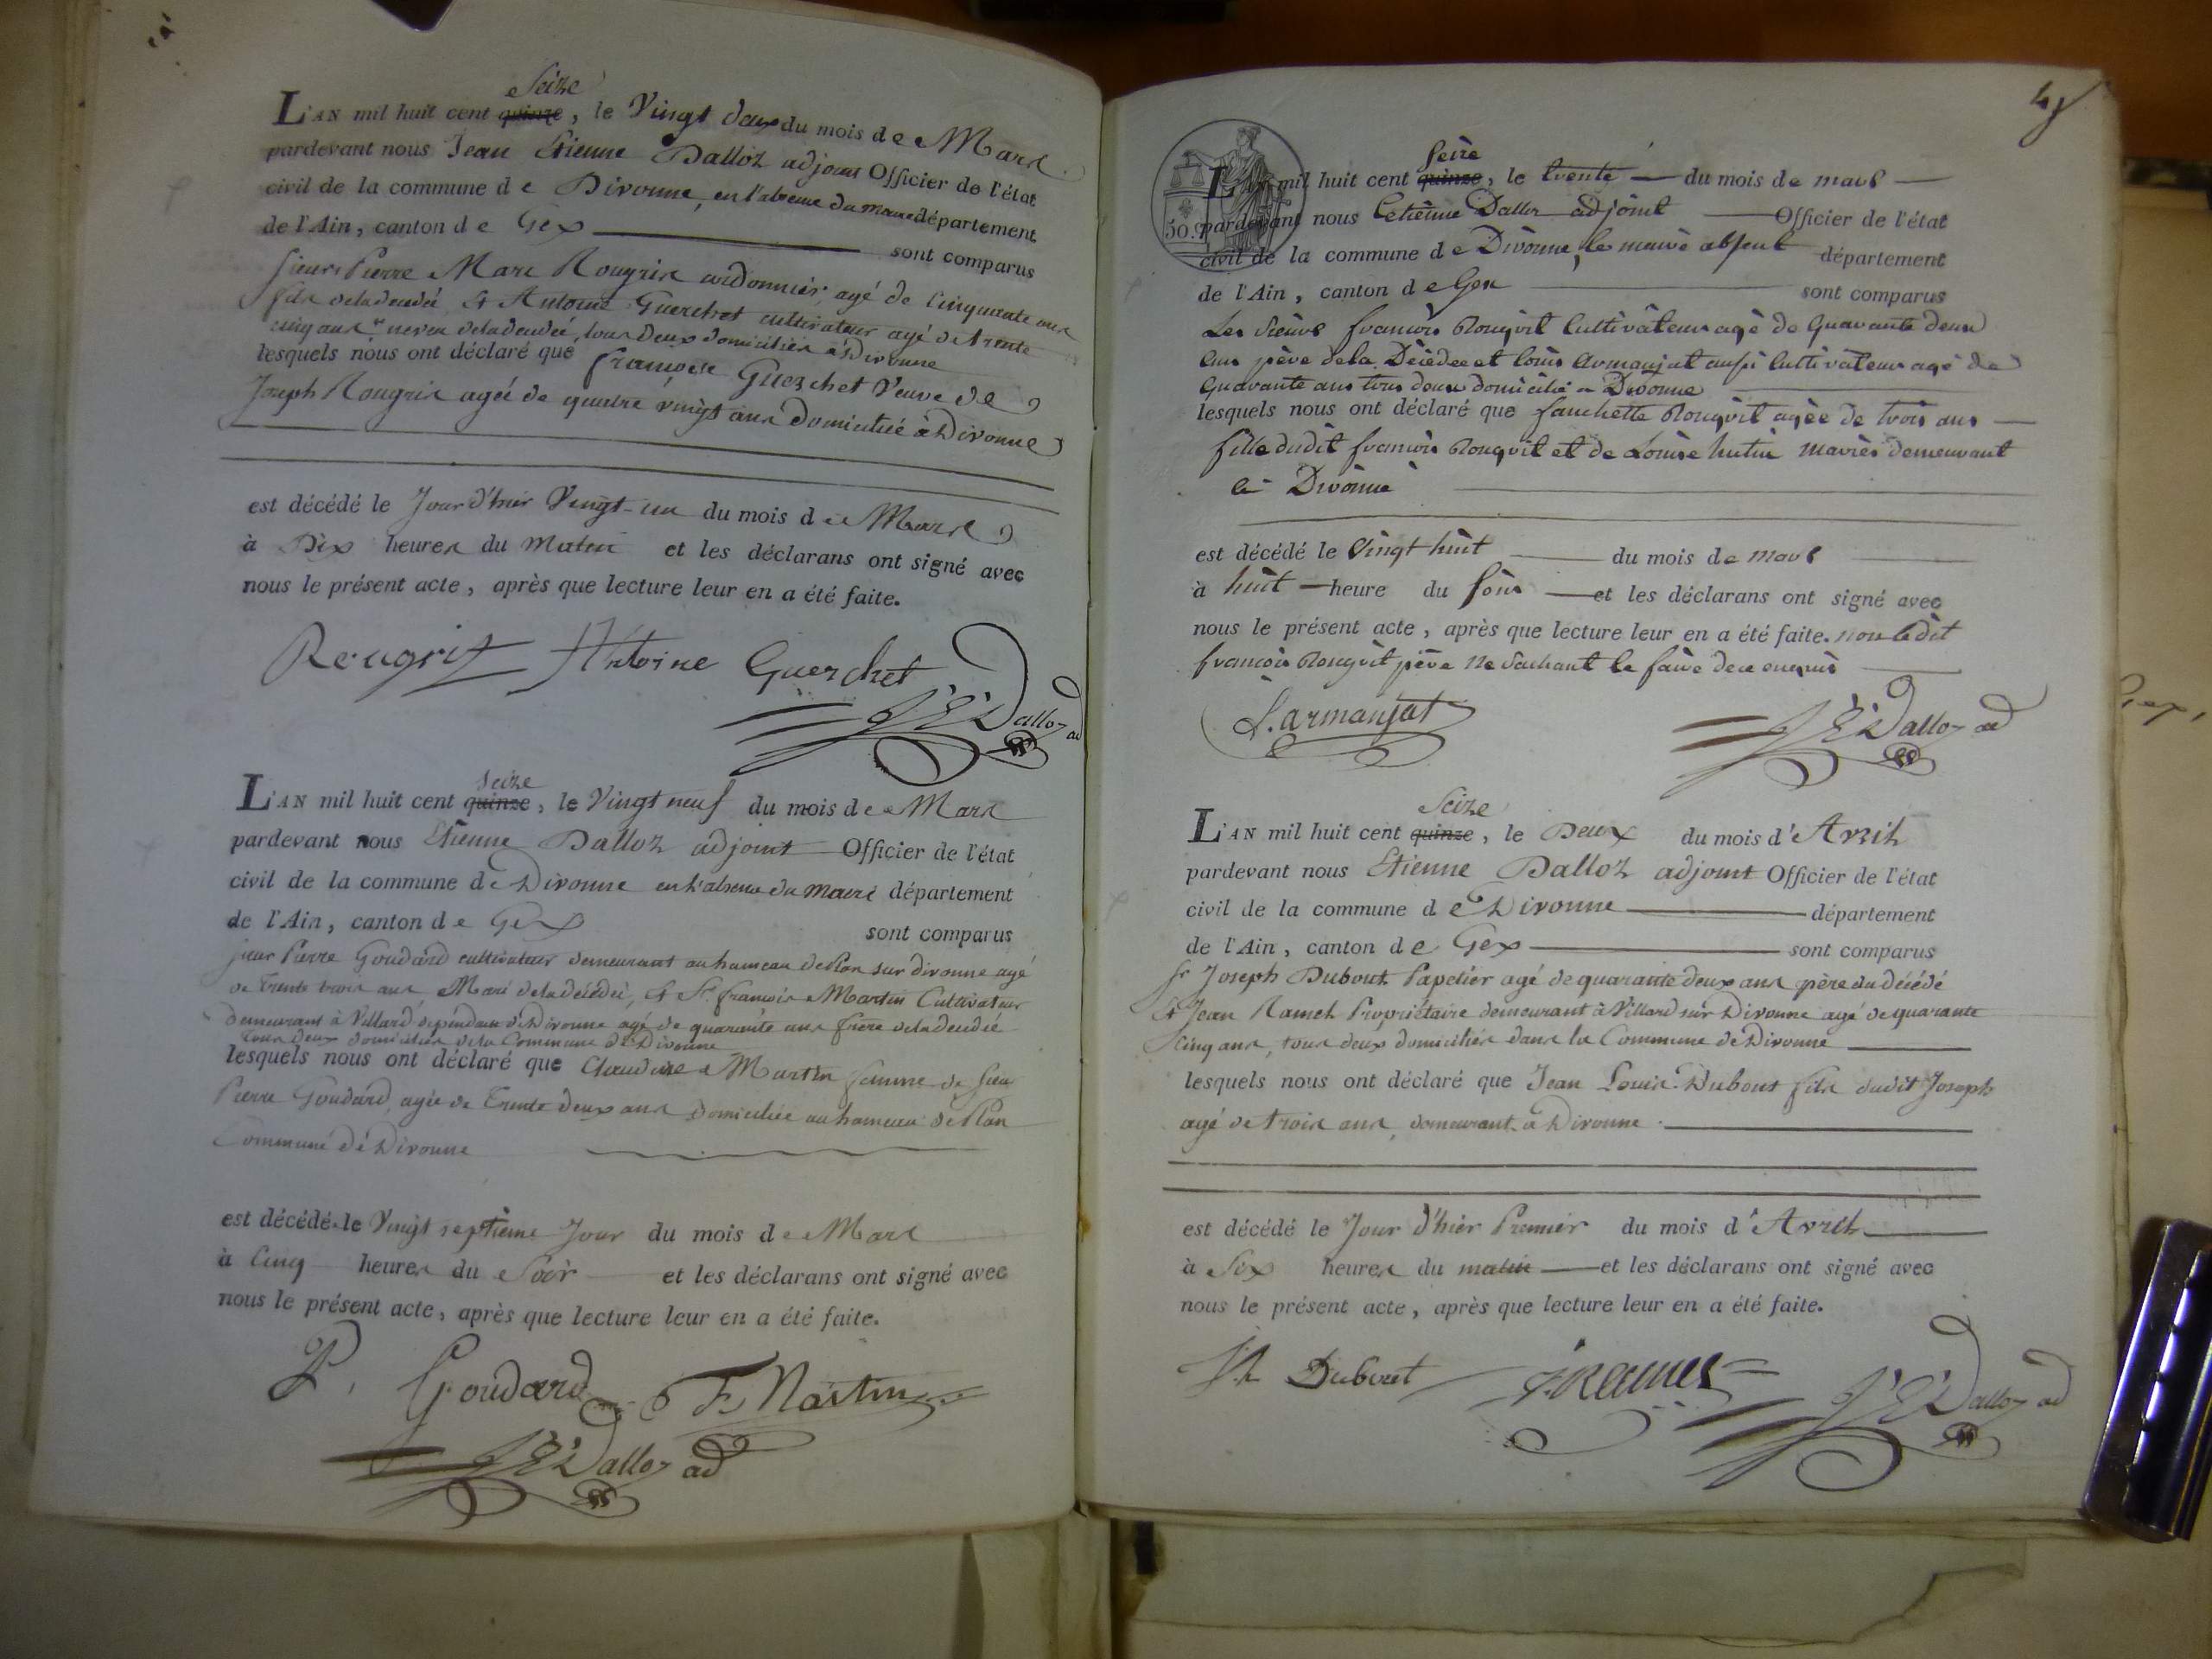 Seize
L'AN mil huit cent quinze, le Vingt deux du mois de Mars
pardevant nous Jean Etienne Dalloz adjoint Officier de l'état
civil de la commune de Divonne, en l'absence du maire département
de l'Ain, canton de Gex sont comparus
sieurs Pierre Marc Rougrix cordonnier, agé de Cinquante ans
fils de la décédée Et Antoine Guerchet cultivateur agé de trente
cinq ans neveu de la décédée, tous deux domiciliés à Divonne
lesquels nous ont déclaré que françoise Guerchet Veuve de
Joseph Rougrix agée de quatre vingt ans domiciliée à Divonne
est décédé le Jour d'hier Vingt-un du mois de Mars
à Dix heures du Matin et les déclarans ont signé avec
nous le présent acte, après que lecture leur en a été faite.
Rougrix Antoine Guerchet
J E Dalloz ad
seize
L'AN mil huit cent quinze, le Vingt neuf du mois de Mars
pardevant nous Etienne Dalloz adjoint Officier de l'état
civil de la commune de Divonne en l'absence du maire département
de l'Ain, canton de Gex sont comparus
sieur Pierre Goudard cultivateur demeurant au hameau de Plan sur divonne agé
de Trente trois ans Mari de la décédée, Et Sr. françois Martin Cultivateur
demeurant à Villard dépendant de Divonne agé de quarante ans frère de la décédée
tous deux domiciliés de la Commune de Divonne
lesquels nous ont déclaré que Claudine Martin femme de sieur
Pierre Goudard, agée de Trente deux ans domiciliée au hameau de Plan
Commune de Divonne
est décédé le Vingt septième Jour du mois de Mars
à Cinq heures du Soir et les déclarans ont signé avec
nous le présent acte, après que lecture leur en a été faite.
P. Goudard F Martin
J E Dalloz ad
50 c
seize
L'AN mil huit cent quinze, le trente du mois de mars
pardevant nous Etienne Dalloz adjoint Officier de l'état
civil de la commune de Divonne, le maire absent département
de l'Ain, canton de Gex sont comparus
Les sieurs francois Rougrit Cultivateur agé de Quarante deux
ans père de la Décédée et louis Armanjat aussi Cultivateur agé de
Quarante ans tous deux domicilié a Divonne
lesquels nous ont déclaré que fanchette Rougrit agée de trois ans
fille dudit francois Rougrit et de Louise hutin mariés demeurant
à Divonne
est décédé le Vingt huit du mois de mars
à huit heure du soir et les déclarans ont signé avec
nous le présent acte, après que lecture leur en a été faite. non ledit
francois Rougrit père ne sachant le faire de ce enquis
L. armanjat J E Dalloz ad
Seize
L'AN mil huit cent quinze, le Deux du mois d'Avril
pardevant nous Etienne Dalloz adjoint Officier de l'état
civil de la commune de Divonne département
de l'Ain, canton de Gex sont comparus
Sr Joseph Dubout Papetier agé de quarante deux ans père du décédé
Et Jean Ramel Propriétaire demeurant à Villard sur Divonne agé de quarante
Cinq ans, tous deux domiciliés dans la Commune de Divonne
lesquels nous ont déclaré que Jean Louis Dubout fils dudit Joseph
agé de trois ans, demeurant à Divonne
est décédé le Jour d'hier Premier du mois d'Avril
à Six heures du matin et les déclarans ont signé avec
nous le présent acte, après que lecture leur en a été faite.
Dubout J. Ramel J E Dalloz ad